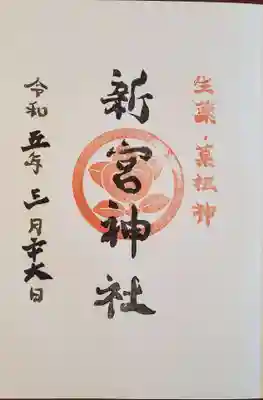 生薬・菓祖神
新宮神社
令和五年三月二十六日